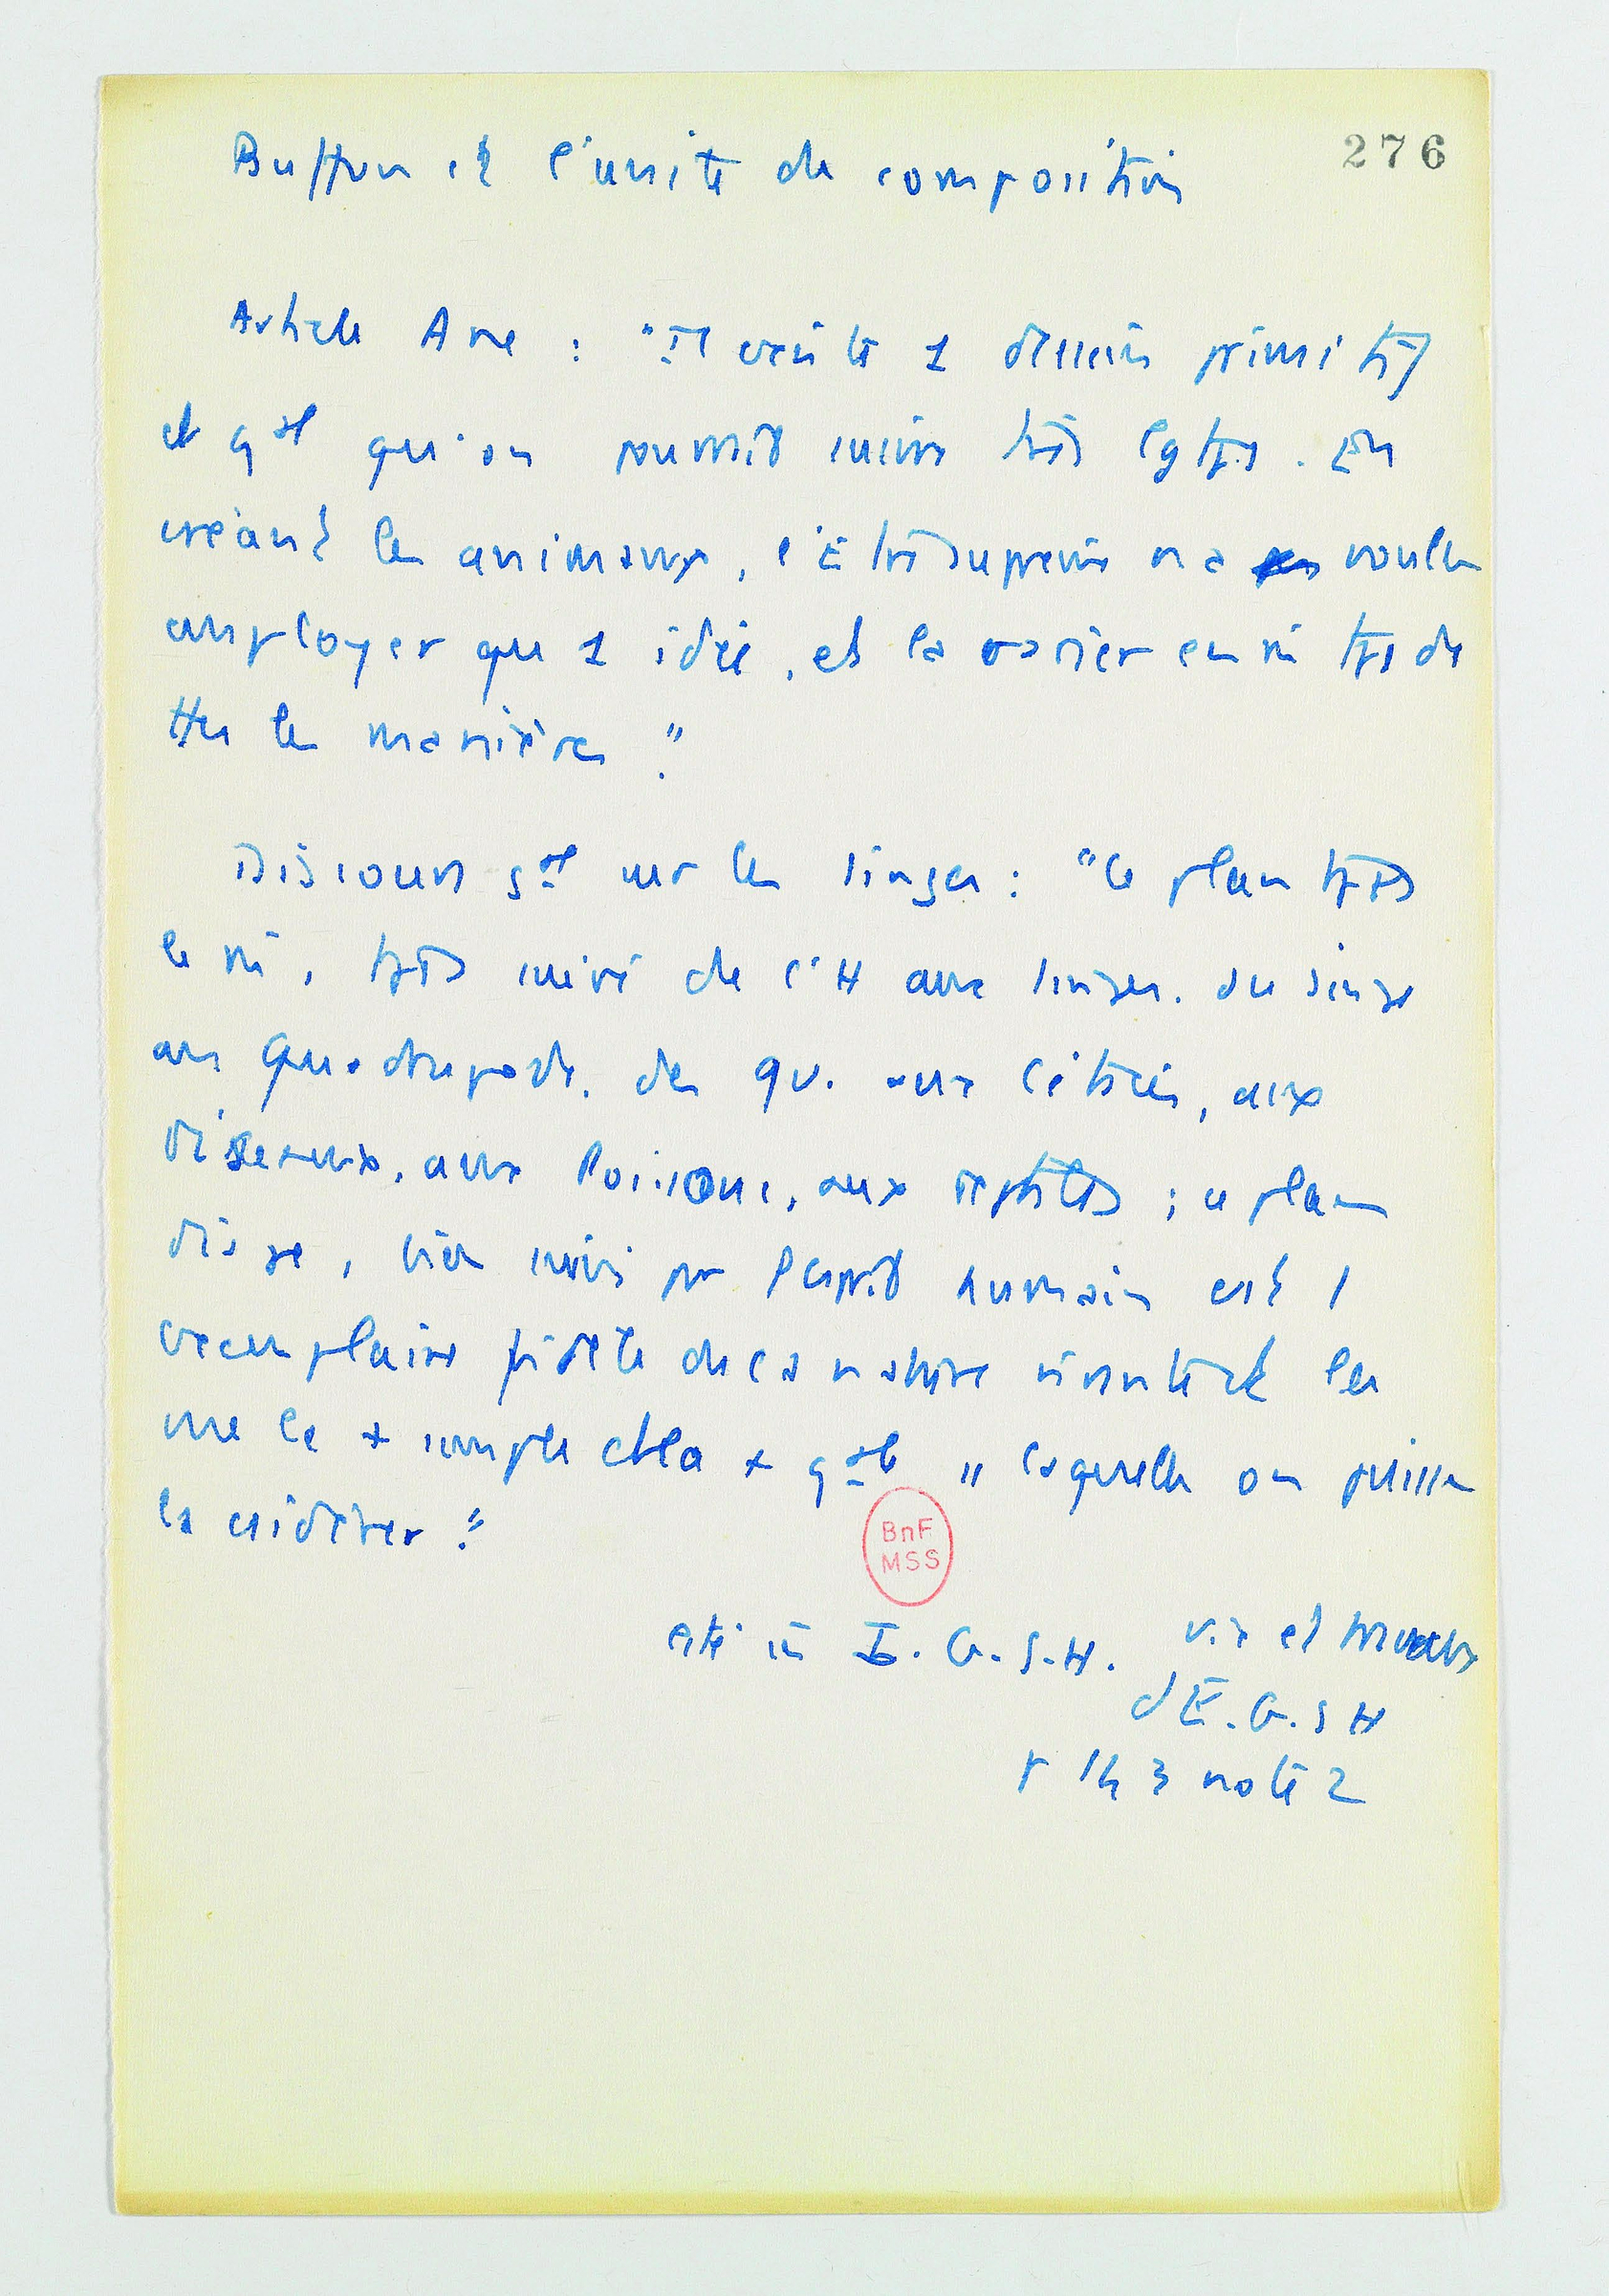 276
Buffon et l'unité de composition
Article Ane : "Il existe 1 dessein primitif
et gal qu'on pourrait suivre très lgtps. En
créant les animaux, l'Être suprême n'a voulu
employer que 1 idée, et la varier en m tps de
ttes les manières."
Discours gal sur les singes : "ce plan tjrs
le m, tjrs suivi de l'H aux singes. du singe
aux quadrupèdes. des qu. aux cétacés, aux
oiseaux, aux Poissons, aux reptiles ; ce plan
dis-je, bien suivi par l'esprit humain est 1
exemplaire fidèle de la nature vivante et la
vue la + simple et la + gale laquelle on puisse
la csidérer."
BnF
MSS
cité in I. G. S.H. vie et travaux
d'E. G. S H
p 143 note 2